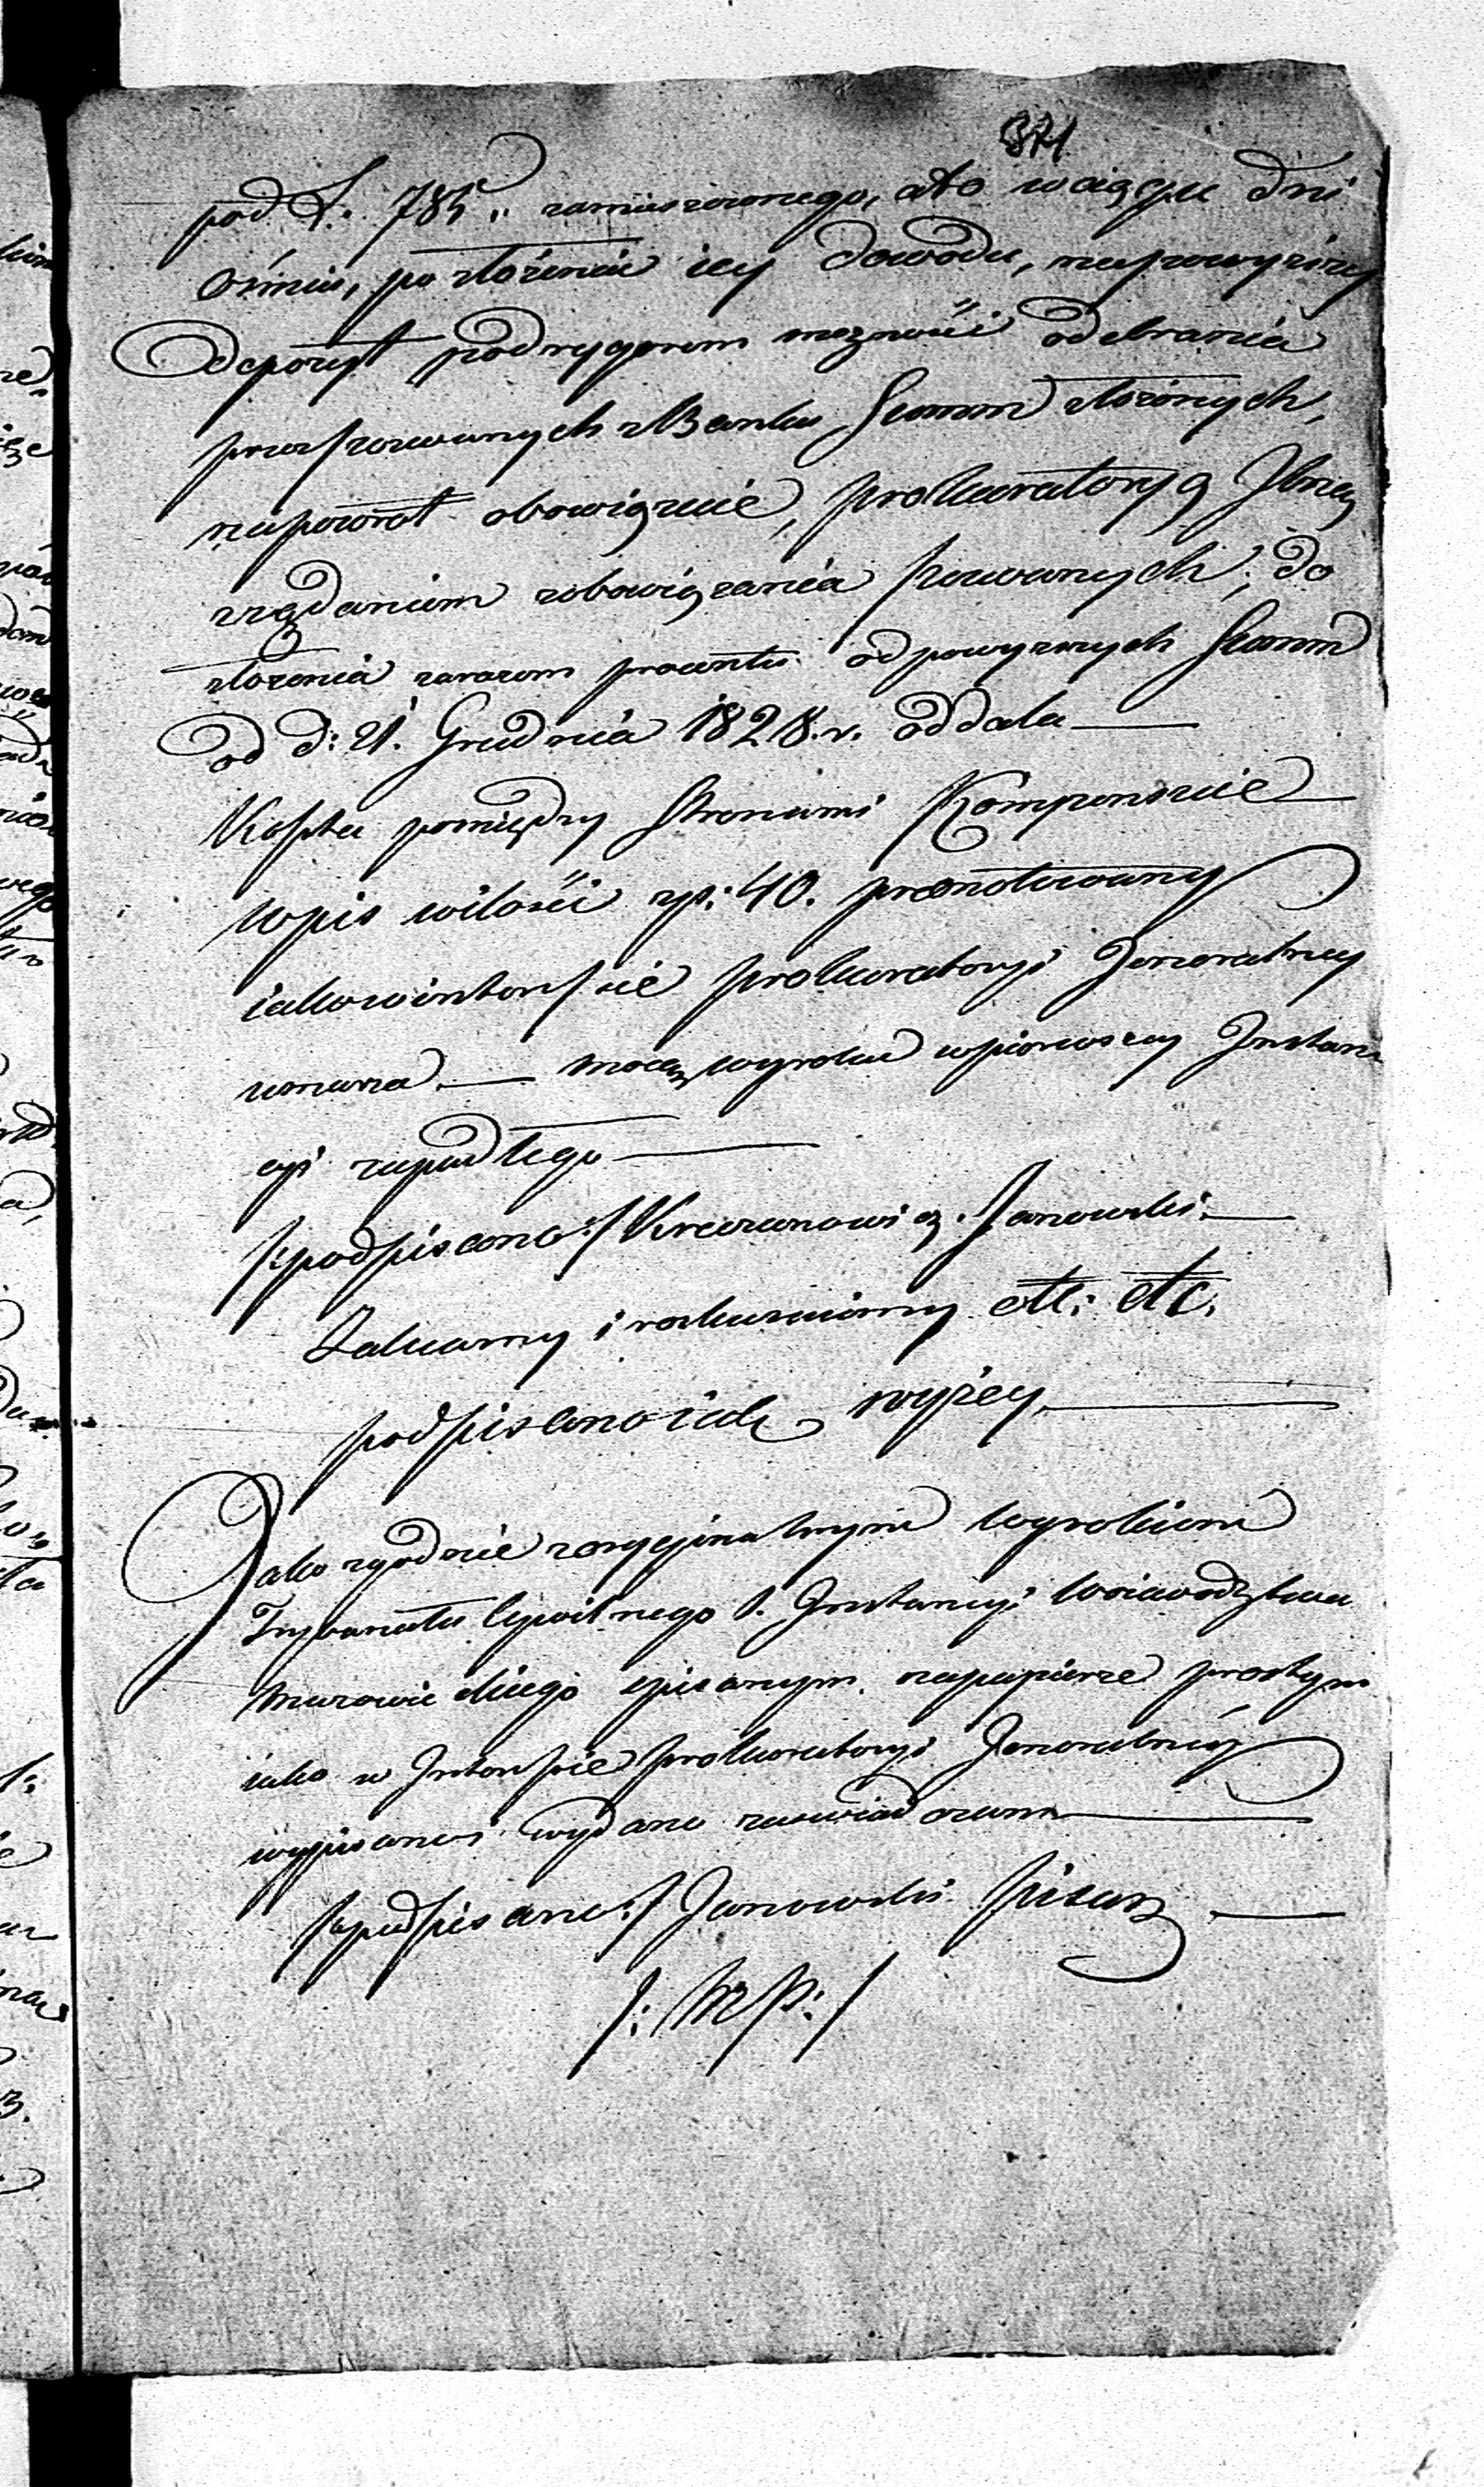 371
pod L. 785 „ zamieszczonego, a to w ciągu dni
ośmiu, po złożeniu iey dowodu, na powyższy
Depozyt pod rygorem mozności odebrania
przez pozwanych z Banku Summ złożonych,
napowrot obowiązuie, Prokuratoryą Jlną
z rządaniem zobowiązania pozwanych, do
złożenia zarazem procentu od powyższych Summ
od d: 21. Grudnia 1828. r. oddala —
Koszta pomiędzy Stronami Kompensuie —
Wpis w ilości zp: 40. prenotowany
iako w interessie Prokuratoryi Generalney
umarza. — mocą wyroku w pierwszey Instan
cyi zapadłego —
/:podpisano:/ Janowski. —
Zalecamy i rozkazuiemy etc: etc.
podpisano iak wyżey. —
Jako zgodnie z oryginalnym wyrokiem
Trybunału Cywilnego I. Instancyi Woiewodztwa
Mazowieckiego spisanym na papierze prostym
iako w Interessie Prokuratoryi Generalney
wypisano i wydano zaswiadczam —
/:podpisano:/ Janowski Pisarz —
/: Mp: /